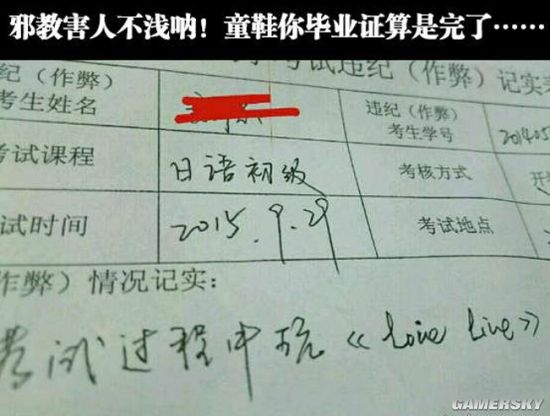 邪教害人不浅呐！童鞋你毕业证算是完了……
考试违纪（作弊）记实
纪（作弊）
考生姓名
违纪（作弊）
考生学号
201405
考试课程
日语初级
考核方式
开
试时间
2015.9.29
考试地点
作弊）情况记实：
考试过程中玩《love live》
GAMERSKY